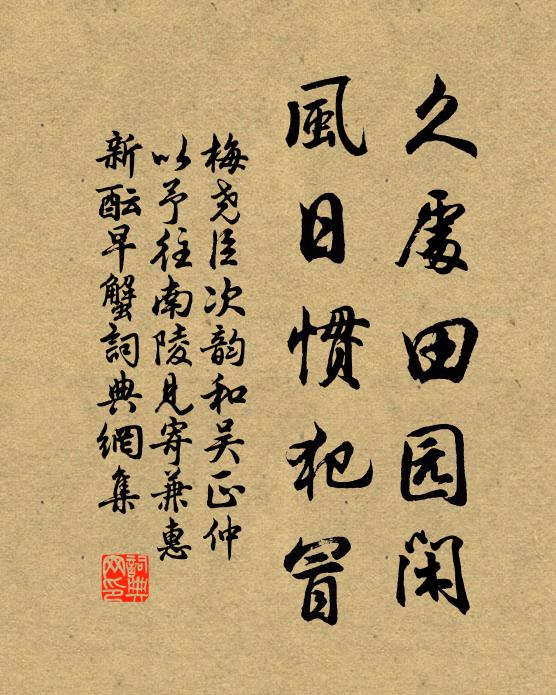 久處田园闲
風日惯犯冒
梅尧臣次韵和吴正仲
以予往南陵見寄兼惠
新酝早蟹詞典網集
詞典
网印